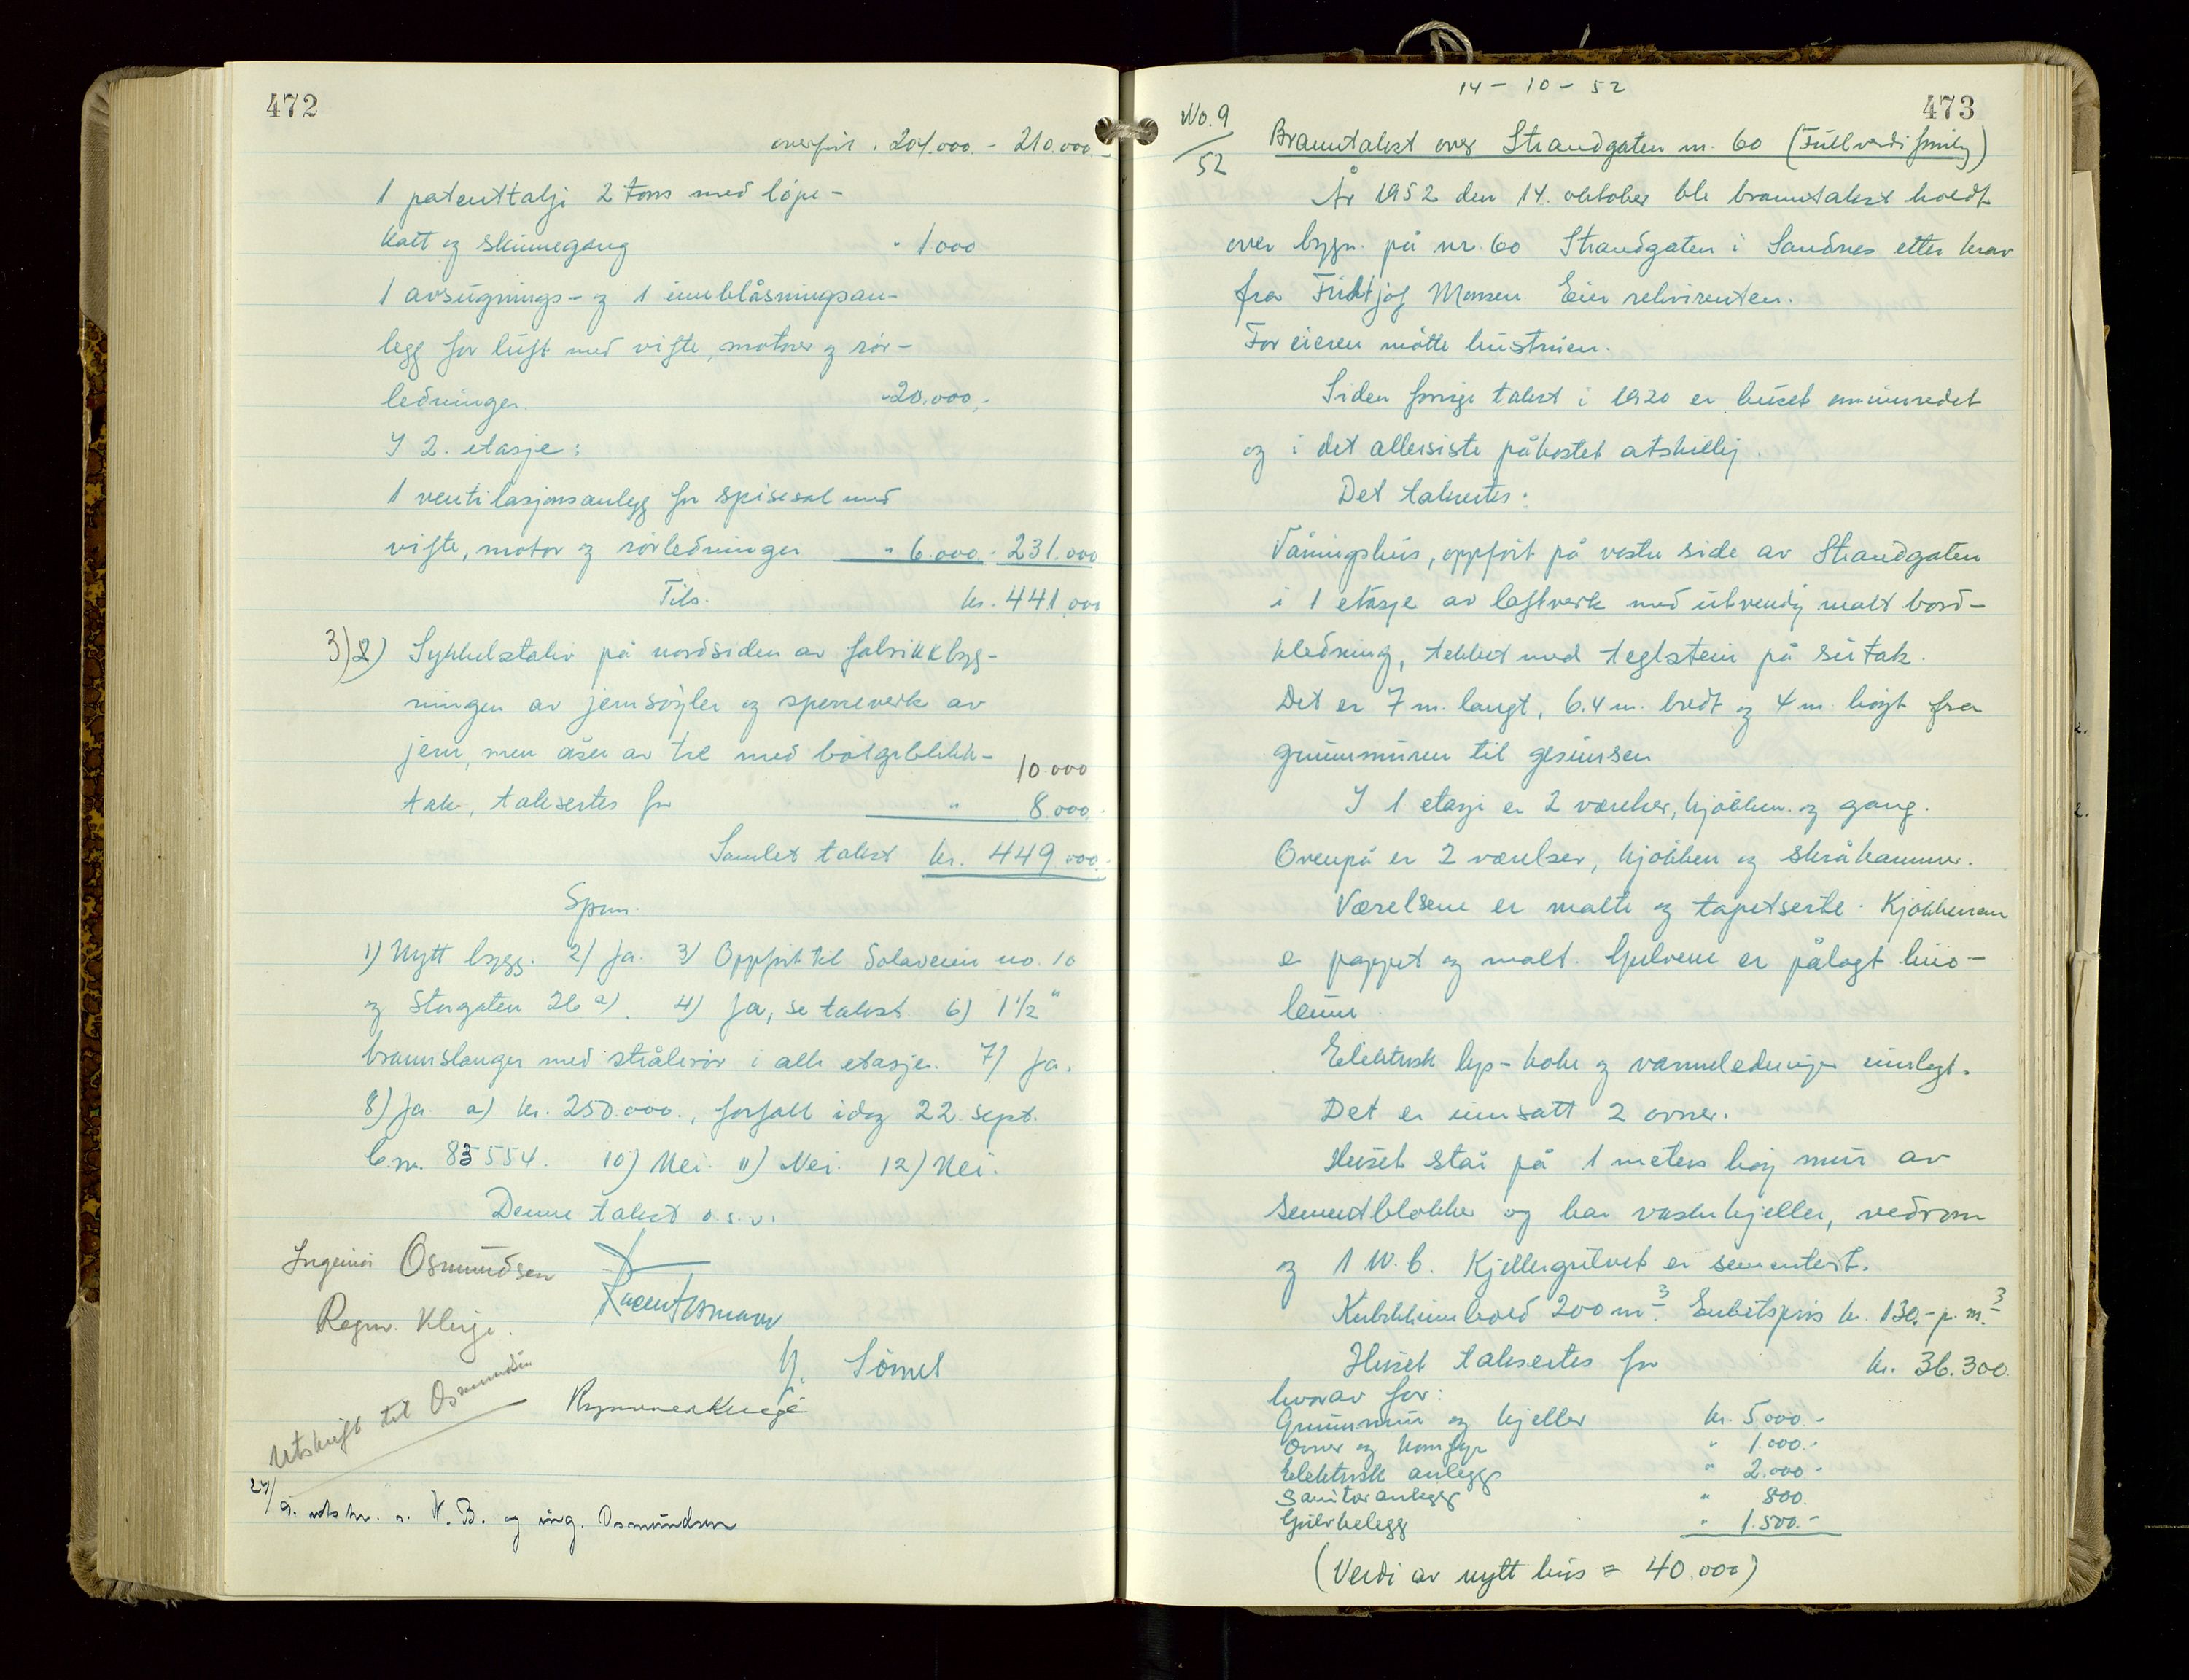 472
overført kr. 204.000.- 210.000.-
1 patenttalje 2 tons med løpe-
katt og skinnegang " 1.000
1 avsugnings- og 1 innblåsningsan-
legg for luft med vifte, motorer og rør-
ledninger "20.000,-
I 2. etasje:
1 ventilasjonsanlegg for spisesal med
vifte, motor og rørledninger " 6.000.- 231.000
Tils. kr. 441.000
3) 2) Sykkelstativ på nordsiden av fabrikkbyg-
ningen av jernsøyler og sperreverk av
jern, men åser av tre med bølgeblikk-
10.000
tak, taksertes for " 8.000.-
Samlet takst kr. 449.000.-
Spm.
1) Nytt bygg. 2) Ja. 3) Oppført til Solaveien no. 10
og Storgaten 26 a). 4) Ja, se takst 6) 1 1/2"
brannslanger med strålerør i alle etasjer. 7) Ja.
8) Ja a) kr. 250.000., forfall idag 22. sept.
C. nr. 83554. 10) Nei. 11) Nei. 12) Nei.
Denne takst o.s.v.
Ingeniør Osmundsen
Regnv. Kleije.
Y. Sömel
Utskrift til Osmundsen
24/9. utskr. s. N. B. og ing. Osmundsen
473
14-10-52
No. 9/52
Branntakst over Strandgaten nr. 60 (Fullverdiforsikr)
År 1952 den 14. oktober ble branntakst holdt
over bygn. på nr. 60 Strandgaten i Sandnes etter krav
fra Fridtjof Monsen. Eier rekvirenten.
For eieren møtte hustruen.
Siden forrige takst i 1920 er huset ominnredet
og i det allersiste påkostet atskillig.
Det takseres:
Våningshus, oppført på vestre side av Strandgaten
i 1 etasje av laftverk med utvendig malt bord-
kledning, tekket med teglstein på sutak.
Det er 7 m. langt, 6.4 m. bredt og 4 m. høyt fra
grunnmuren til gesimsen
I 1 etasje er 2 værelser, kjøkken og gang.
Ovenpå er 2 værelser, kjøkken og skråkammer.
Værelsene er malte og tapetserte. Kjøkkenene
er pappet og malt. Gulvene er pålagt lino-
leum.
Elektrisk lys- koke og varmeledninger innlagt.
Det er innsatt 2 ovner.
Huset står på 1 meters høy mur av
sementblokker og har vaskekjeller, vedrom
og 1 W.C. Kjellergulvet er sementert.
Kubikkinnhold 200 m³. Enhetspris kr. 130.- p. m³
Huset taksertes for kr. 36.300.
hvorav for:
Grunnmur og kjeller kr. 5.000.-
Ovner og komfyr " 1.000.-
Elektrisk anlegg " 2.000.-
Sanitæranlegg " 800.
Gulvbelegg " 1.500.-
(Verdi av nytt hus = 40.000)